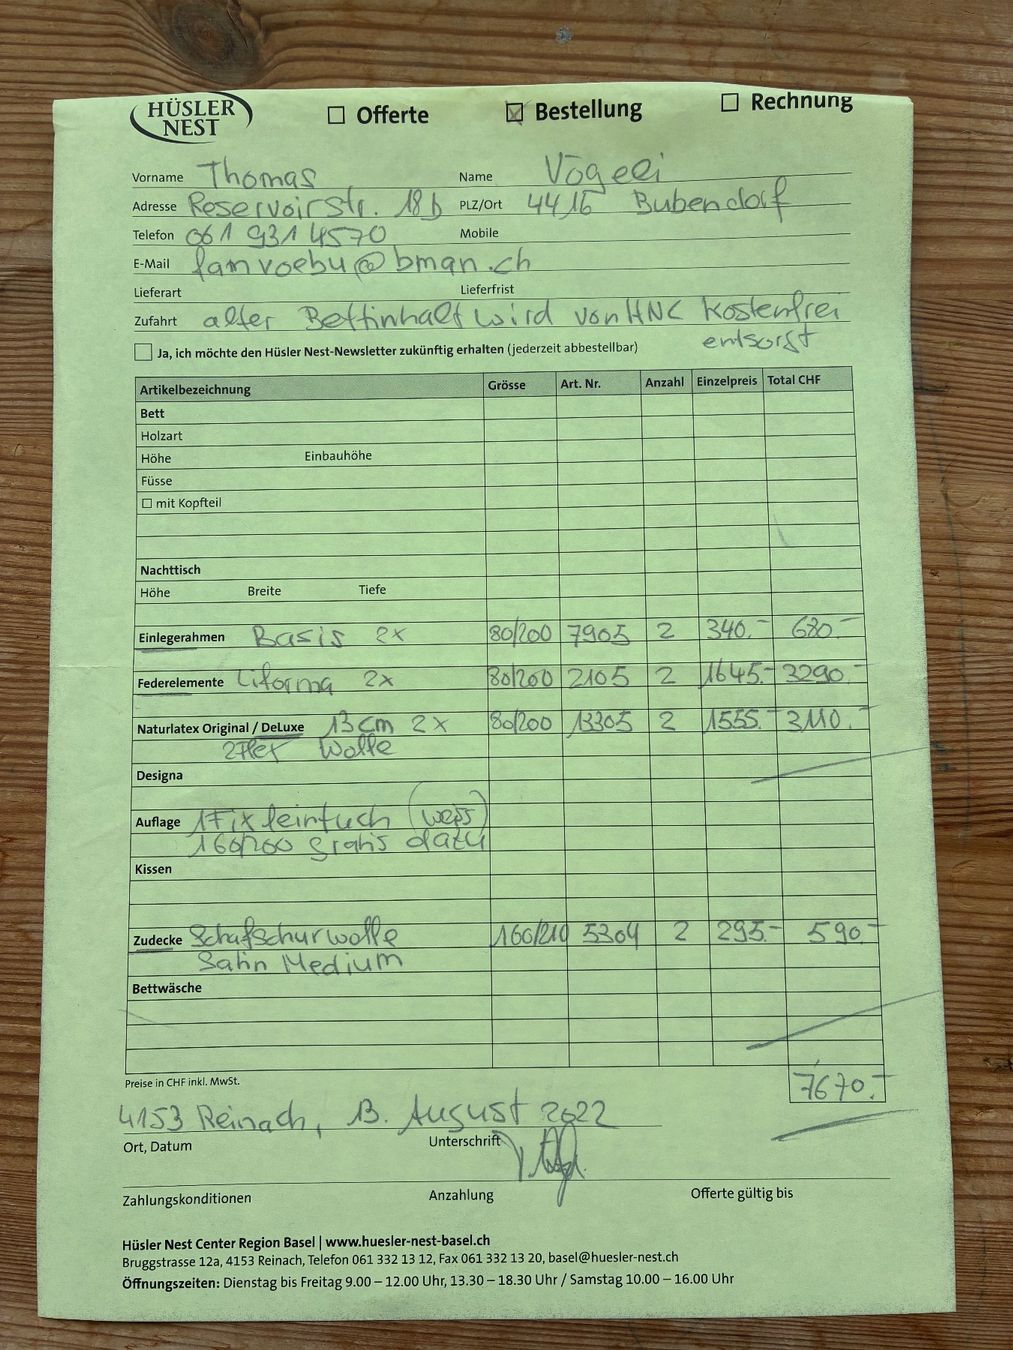 HÜSLER NEST ☐ Offerte ☒ Bestellung ☐ Rechnung
Vorname Thomas Name Vögeli
Adresse Reservoirstr. 18b PLZ/Ort 4416 Bubendorf
Telefon 061 931 4570 Mobile
E-Mail famvoebu@bman.ch
Lieferart Lieferfrist
Zufahrt alter Bettinhalt wird von HNC kostenfrei
entsorgt
☐ Ja, ich möchte den Hüsler Nest-Newsletter zukünftig erhalten (jederzeit abbestellbar)
Artikelbezeichnung Grösse Art. Nr. Anzahl Einzelpreis Total CHF
Bett
Holzart
Höhe Einbauhöhe
Füsse
☐ mit Kopfteil
Nachttisch
Höhe Breite Tiefe
Einlegerahmen Basis 2x 80/200 7905 2 340.- 680.-
Federelemente Liforma 2x 80/200 2105 2 1645.- 3290.-
Naturlatex Original / DeLuxe 13cm 2x 80/200 13305 2 1555.- 3110.-
Wolle
Designa
Auflage 1 Fixleintuch (weiss)
160/200 gratis dazu
Kissen
Zudecke Schafschurwolle 160/210 5304 2 295.- 590.-
Satin Medium
Bettwäsche
Preise in CHF inkl. MwSt. 7670.-
4153 Reinach, 13. August 2022
Ort, Datum Unterschrift
Zahlungskonditionen Anzahlung Offerte gültig bis
Hüsler Nest Center Region Basel | www.huesler-nest-basel.ch
Bruggstrasse 12a, 4153 Reinach, Telefon 061 332 13 12, Fax 061 332 13 20, basel@huesler-nest.ch
Öffnungszeiten: Dienstag bis Freitag 9.00 – 12.00 Uhr, 13.30 – 18.30 Uhr / Samstag 10.00 – 16.00 Uhr